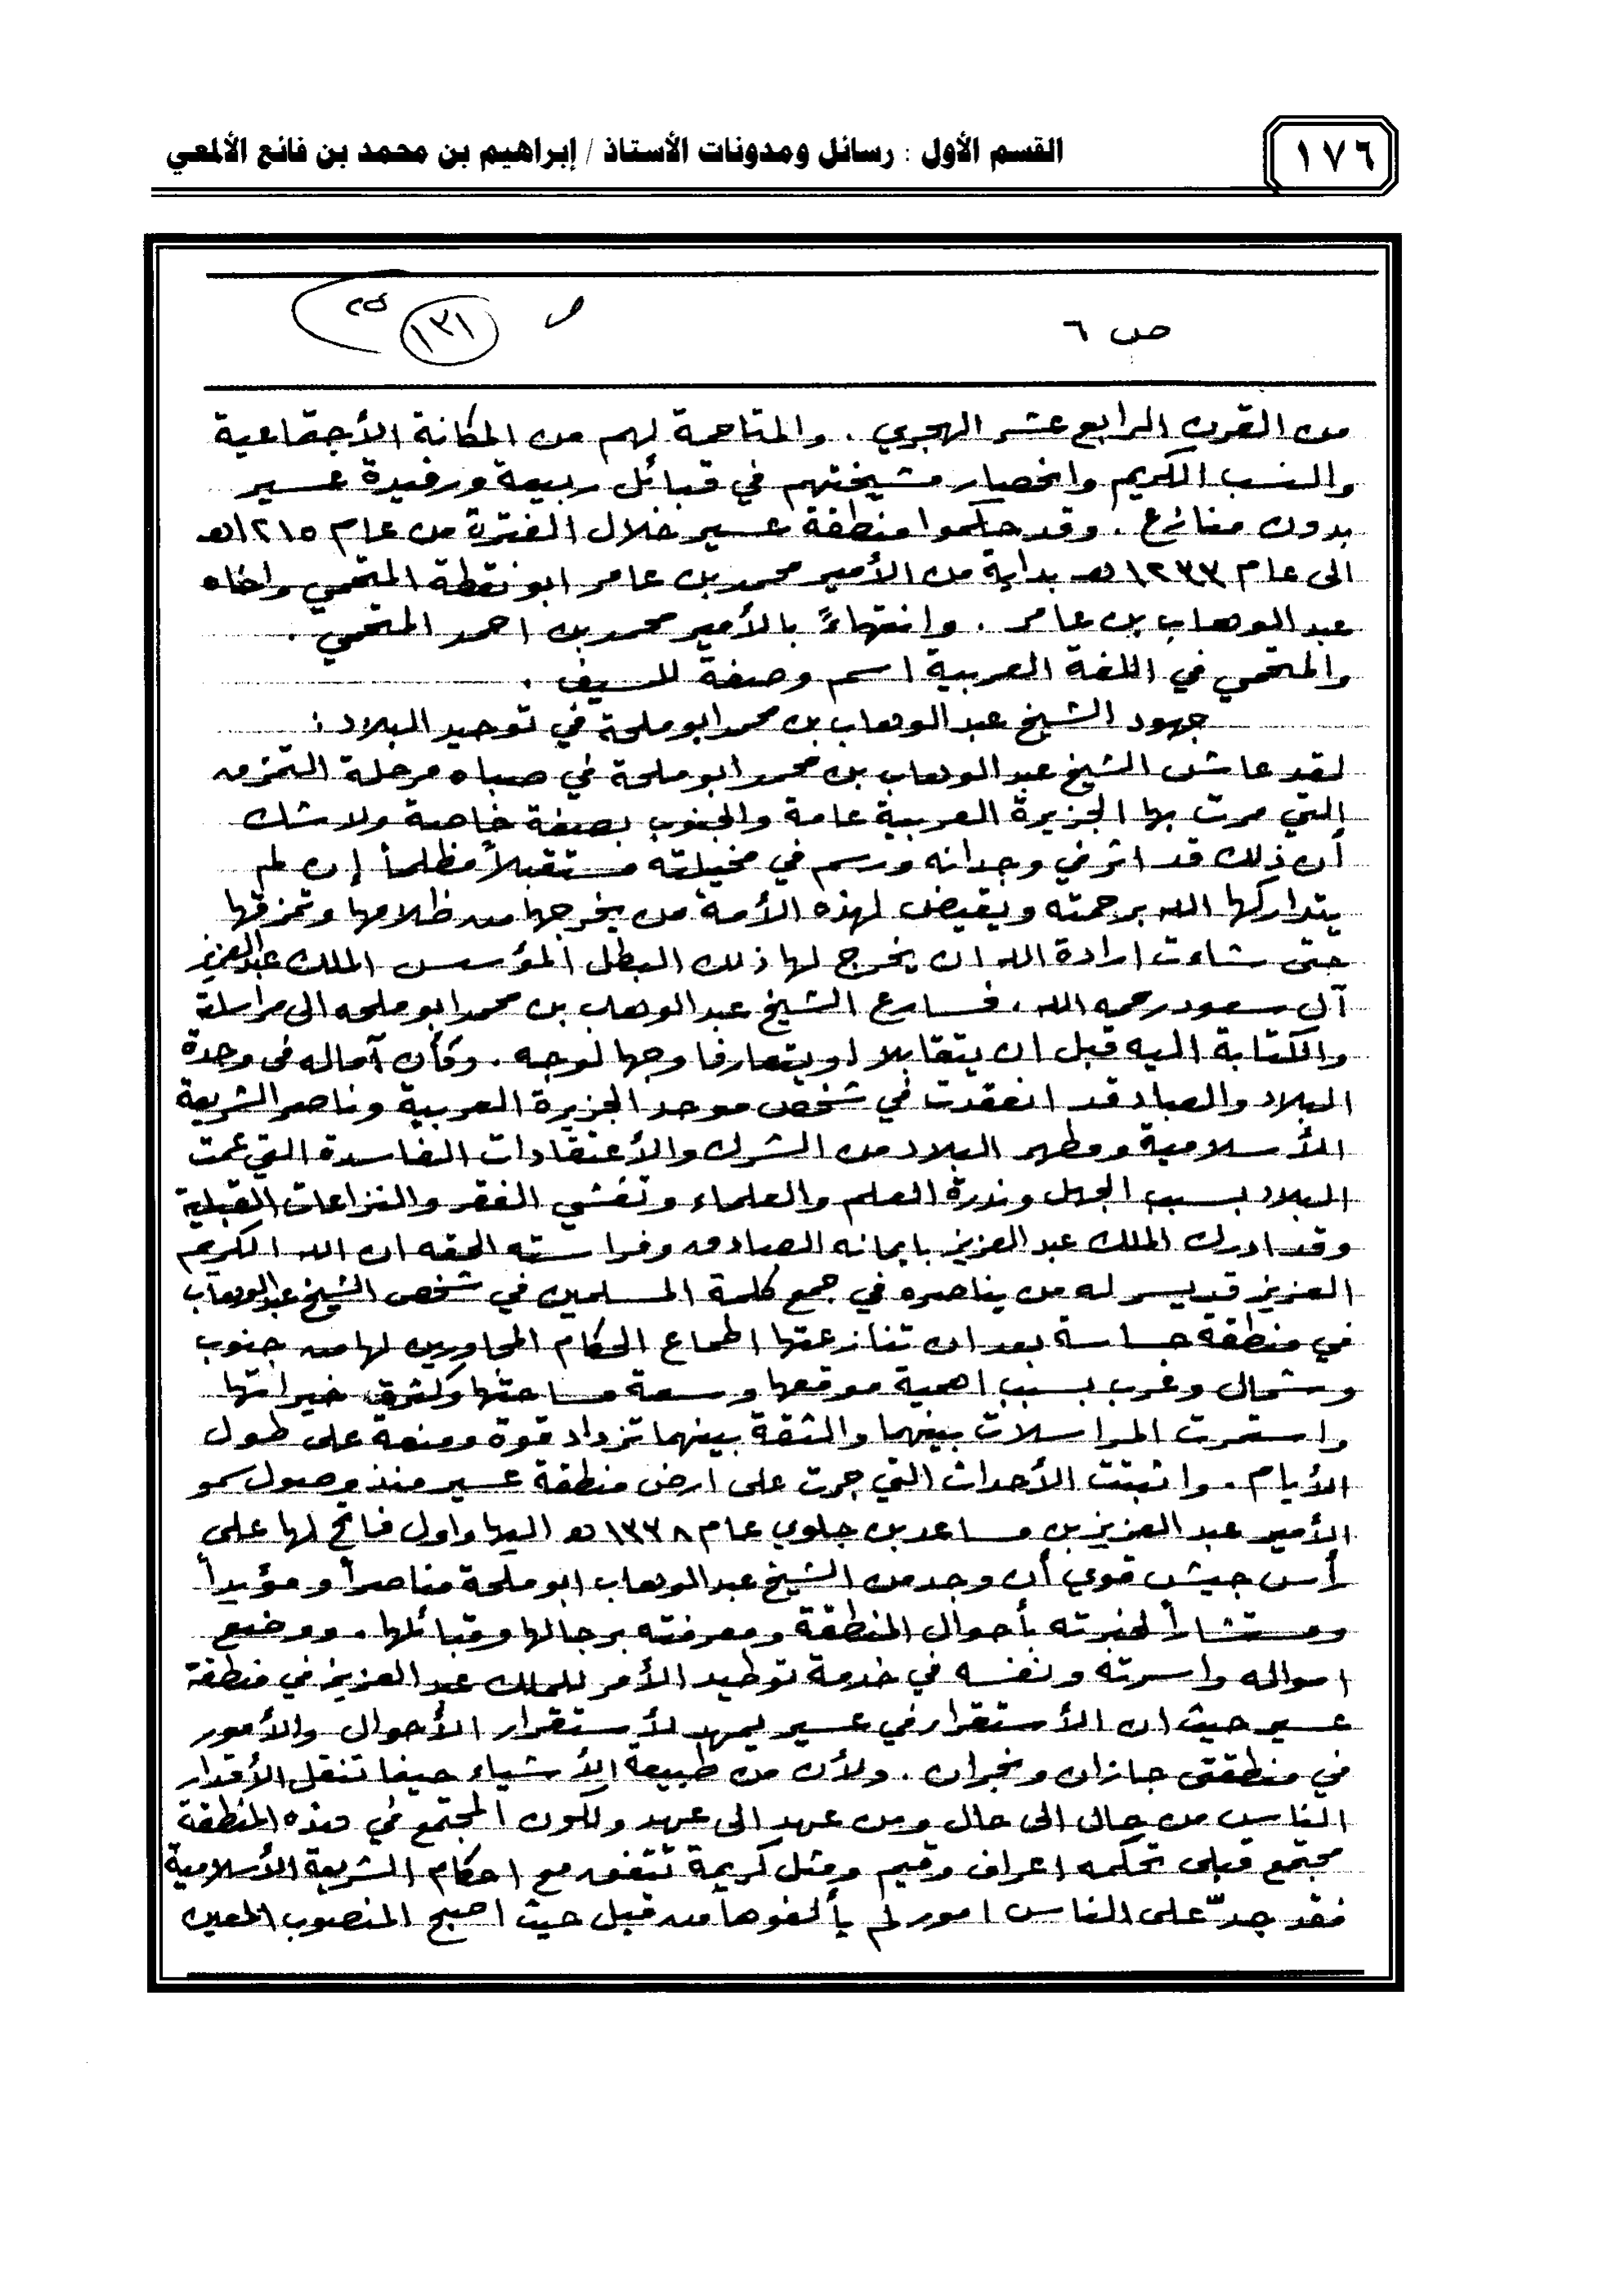 ١٧٦
القسم الأول : رسائل ومدونات الأستاذ / إبراهيم بن محمد بن فائع الألمعي
ص ٦
ص ١٣١
من القرن الرابع عشر الهجري . والمتاحمة لهم من المكانة الأجتماعية
والنسب الكريم وانحصار مشيختهم في قبائل ربيعة ورفيدة عسير
بدون منازع . وقد حكموا منطقة عسير خلال الفترة من عام ١٢١٥هـ
الى عام ١٢٣٣هـ بداية من الأمير محمد بن عامر ابو نقطة المتحمي واخاه
عبد الوهاب بن عامر . وانتهاءً بالأمير محمد بن احمد المتحمي .
والمتحمي في اللغة العربية اسم وصفة للسيف .
جهود الشيخ عبد الوهاب بن محمد ابو ملحة في توحيد البلاد :
لقد عاش الشيخ عبد الوهاب بن محمد ابو ملحة في صباه مرحلة التمزق
التي مرت بها الجزيرة العربية عامة والجنوب بصفة خاصة ولا شك
أن ذلك قد اثر في وجدانه ورسم في مخيلته مستقبلاً مظلماً إن لم
يتداركها الله برحمته ويقيض لهذه الأمة من يخرجها من ظلامها وتمزقها
حتى شاءت ارادة الله ان يخرج لها ذلك البطل المؤسس الملك عبد العزيز
آل سعود رحمه الله ، فسارع الشيخ عبد الوهاب بن محمد ابو ملحه الى مراسلة
والكتابة اليه قبل ان يتقابلا او يتعارفا وجها لوجه . وكأن آماله في وحدة
البلاد والعباد قد انعقدت في شخص موحد الجزيرة العربية وناصر الشريعة
الأسلامية ومطهر البلاد من الشرك والأعتقادات الفاسدة التي عمت
البلاد بسبب الجهل وندرة العلم والعلماء وتفشي الفقر والنزاعات القبلية
وقد ادرك الملك عبد العزيز بايمانه الصادق وفراسته الحقه ان الله الكريم
العزيز قد يسر له من يناصره في جمع كلمة المسلمين في شخص الشيخ عبد الوهاب
في منطقة حساسة بعد ان تنازعتها اطماع الحكام المجاورين لها من جنوب
وشمال وغرب بسبب اهمية موقعها وسعة مساحتها وكثرة خيراتها
واستمرت المراسلات بينهما والثقة بينهما تزداد قوة ومنعة على طول
الأيام . واثبتت الأحداث التي جرت على ارض منطقة عسير منذ وصول سمو
الأمير عبد العزيز بن مساعد بن جلوي عام ١٣٣٨هـ اليها واول فاتح لها على
رأس جيش قوي أن وجد من الشيخ عبد الوهاب ابو ملحة مناصراً ومؤيداً
ومستشاراً لخبرته بأحوال المنطقة ومعرفته برجالها وقبائلها . ووضع
امواله واسرته ونفسه في خدمة توطيد الأمر للملك عبد العزيز في منطقة
عسير حيث ان الأستقرار في عسير يمهد لأستقرار الأحوال والأمور
في منطقتى جازان ونجران . ولأن من طبيعة الأشياء حينما تنقل الأقدار
الناس من حال الى حال ومن عهد الى عهد ولكون المجتمع في هذه المنطقة
مجتمع قبلى تحكمه اعراف وقيم ومثل كريمة تتفق مع احكام الشريعة الأسلامية
فقد جدّ على الناس امور لم يألفوها من قبل حيث اصبح المنصوب المعين